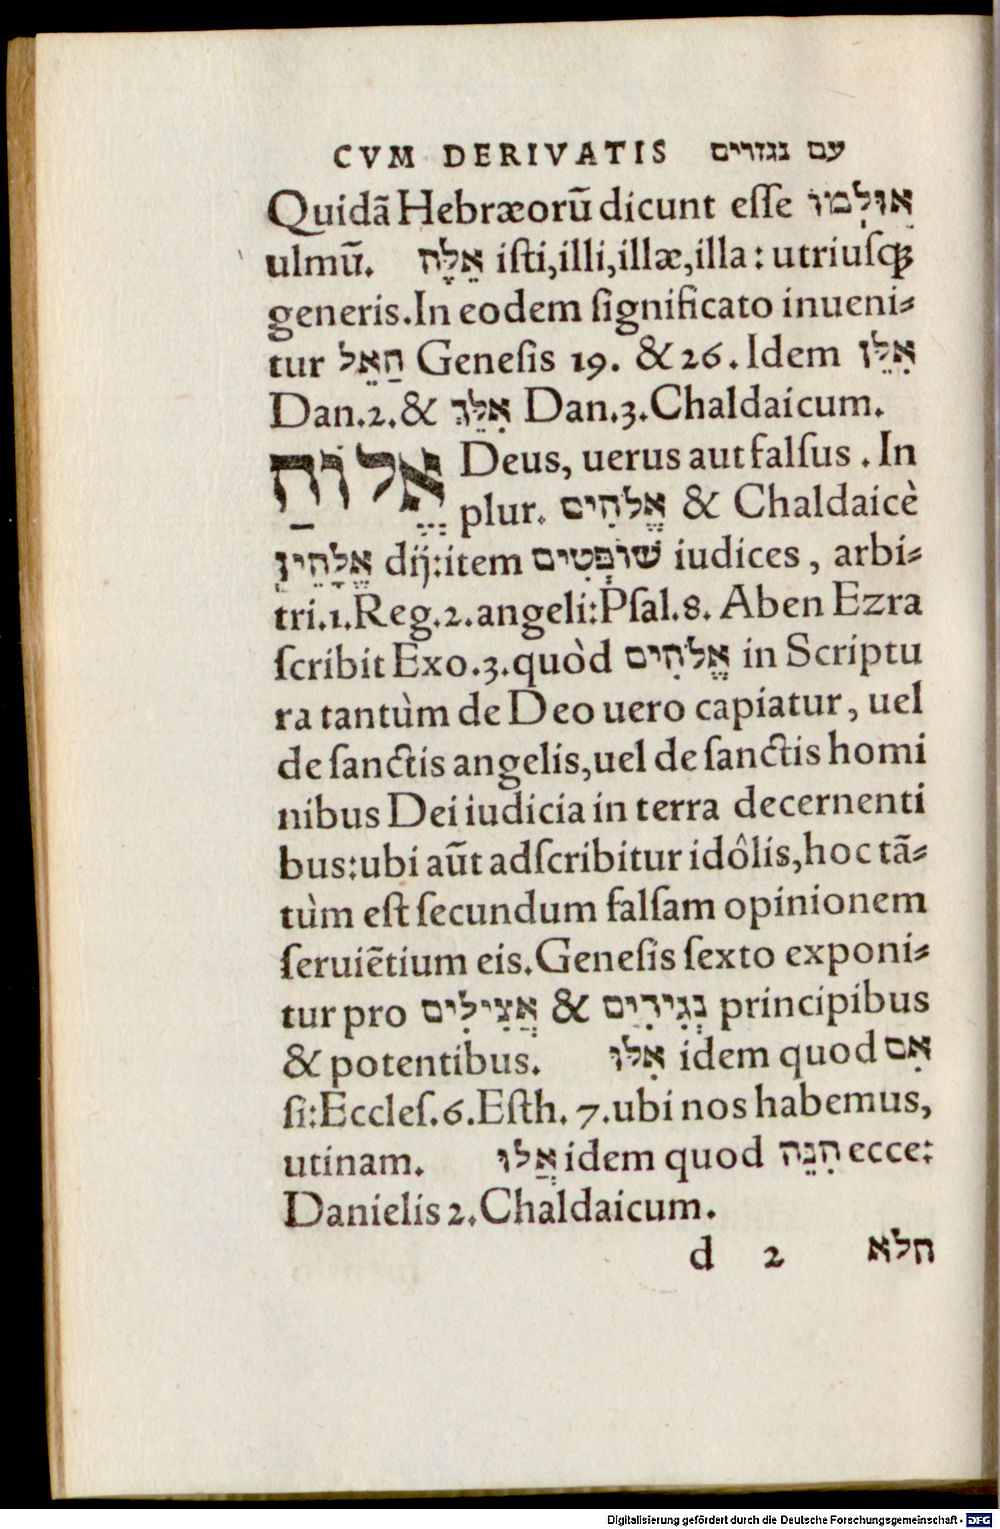 CVM DERIVATIS עם נגזרים
Quidā Hebræorū dicunt eſſe אוּלְמוֹ
ulmū. אֵלֶּה iſti,illi,illæ,illa: utriuſq;
generis.In eodem ſignificato inueni⸗
tur הָאֵל Geneſis 19. & 26. Idem אִלֵּן
Dan.2.& אִלֵּךְ Dan.3.Chaldaicum.
אֱלוֹהַּ Deus, uerus aut falſus . In
plur. אֱלֹהִים & Chaldaicè
אֱלָהִין dij:item שׁוֹפְטִים iudices , arbi⸗
tri.1.Reg.2.angeli:Pſal.8. Aben Ezra
ſcribit Exo.3.quòd אֱלֹהִים in Scriptu
ra tantùm de Deo uero capiatur, uel
de ſanctis angelis,uel de ſanctis homi
nibus Dei iudicia in terra decernenti
bus:ubi aūt adſcribitur idôlis,hoc tā⸗
tùm eſt ſecundum falſam opinionem
ſeruiētium eis.Geneſis ſexto exponi⸗
tur pro אֲצִילִים & נְגִידִים principibus
& potentibus. אִלּוּ idem quod אִם
ſi:Eccleſ.6.Eſth. 7.ubi nos habemus,
utinam. אֲלוּ idem quod הִנֵּה ecce:
Danielis 2.Chaldaicum.
d 2 חלא
Digitalisierung gefördert durch die Deutsche Forschungsgemeinschaft - DFG